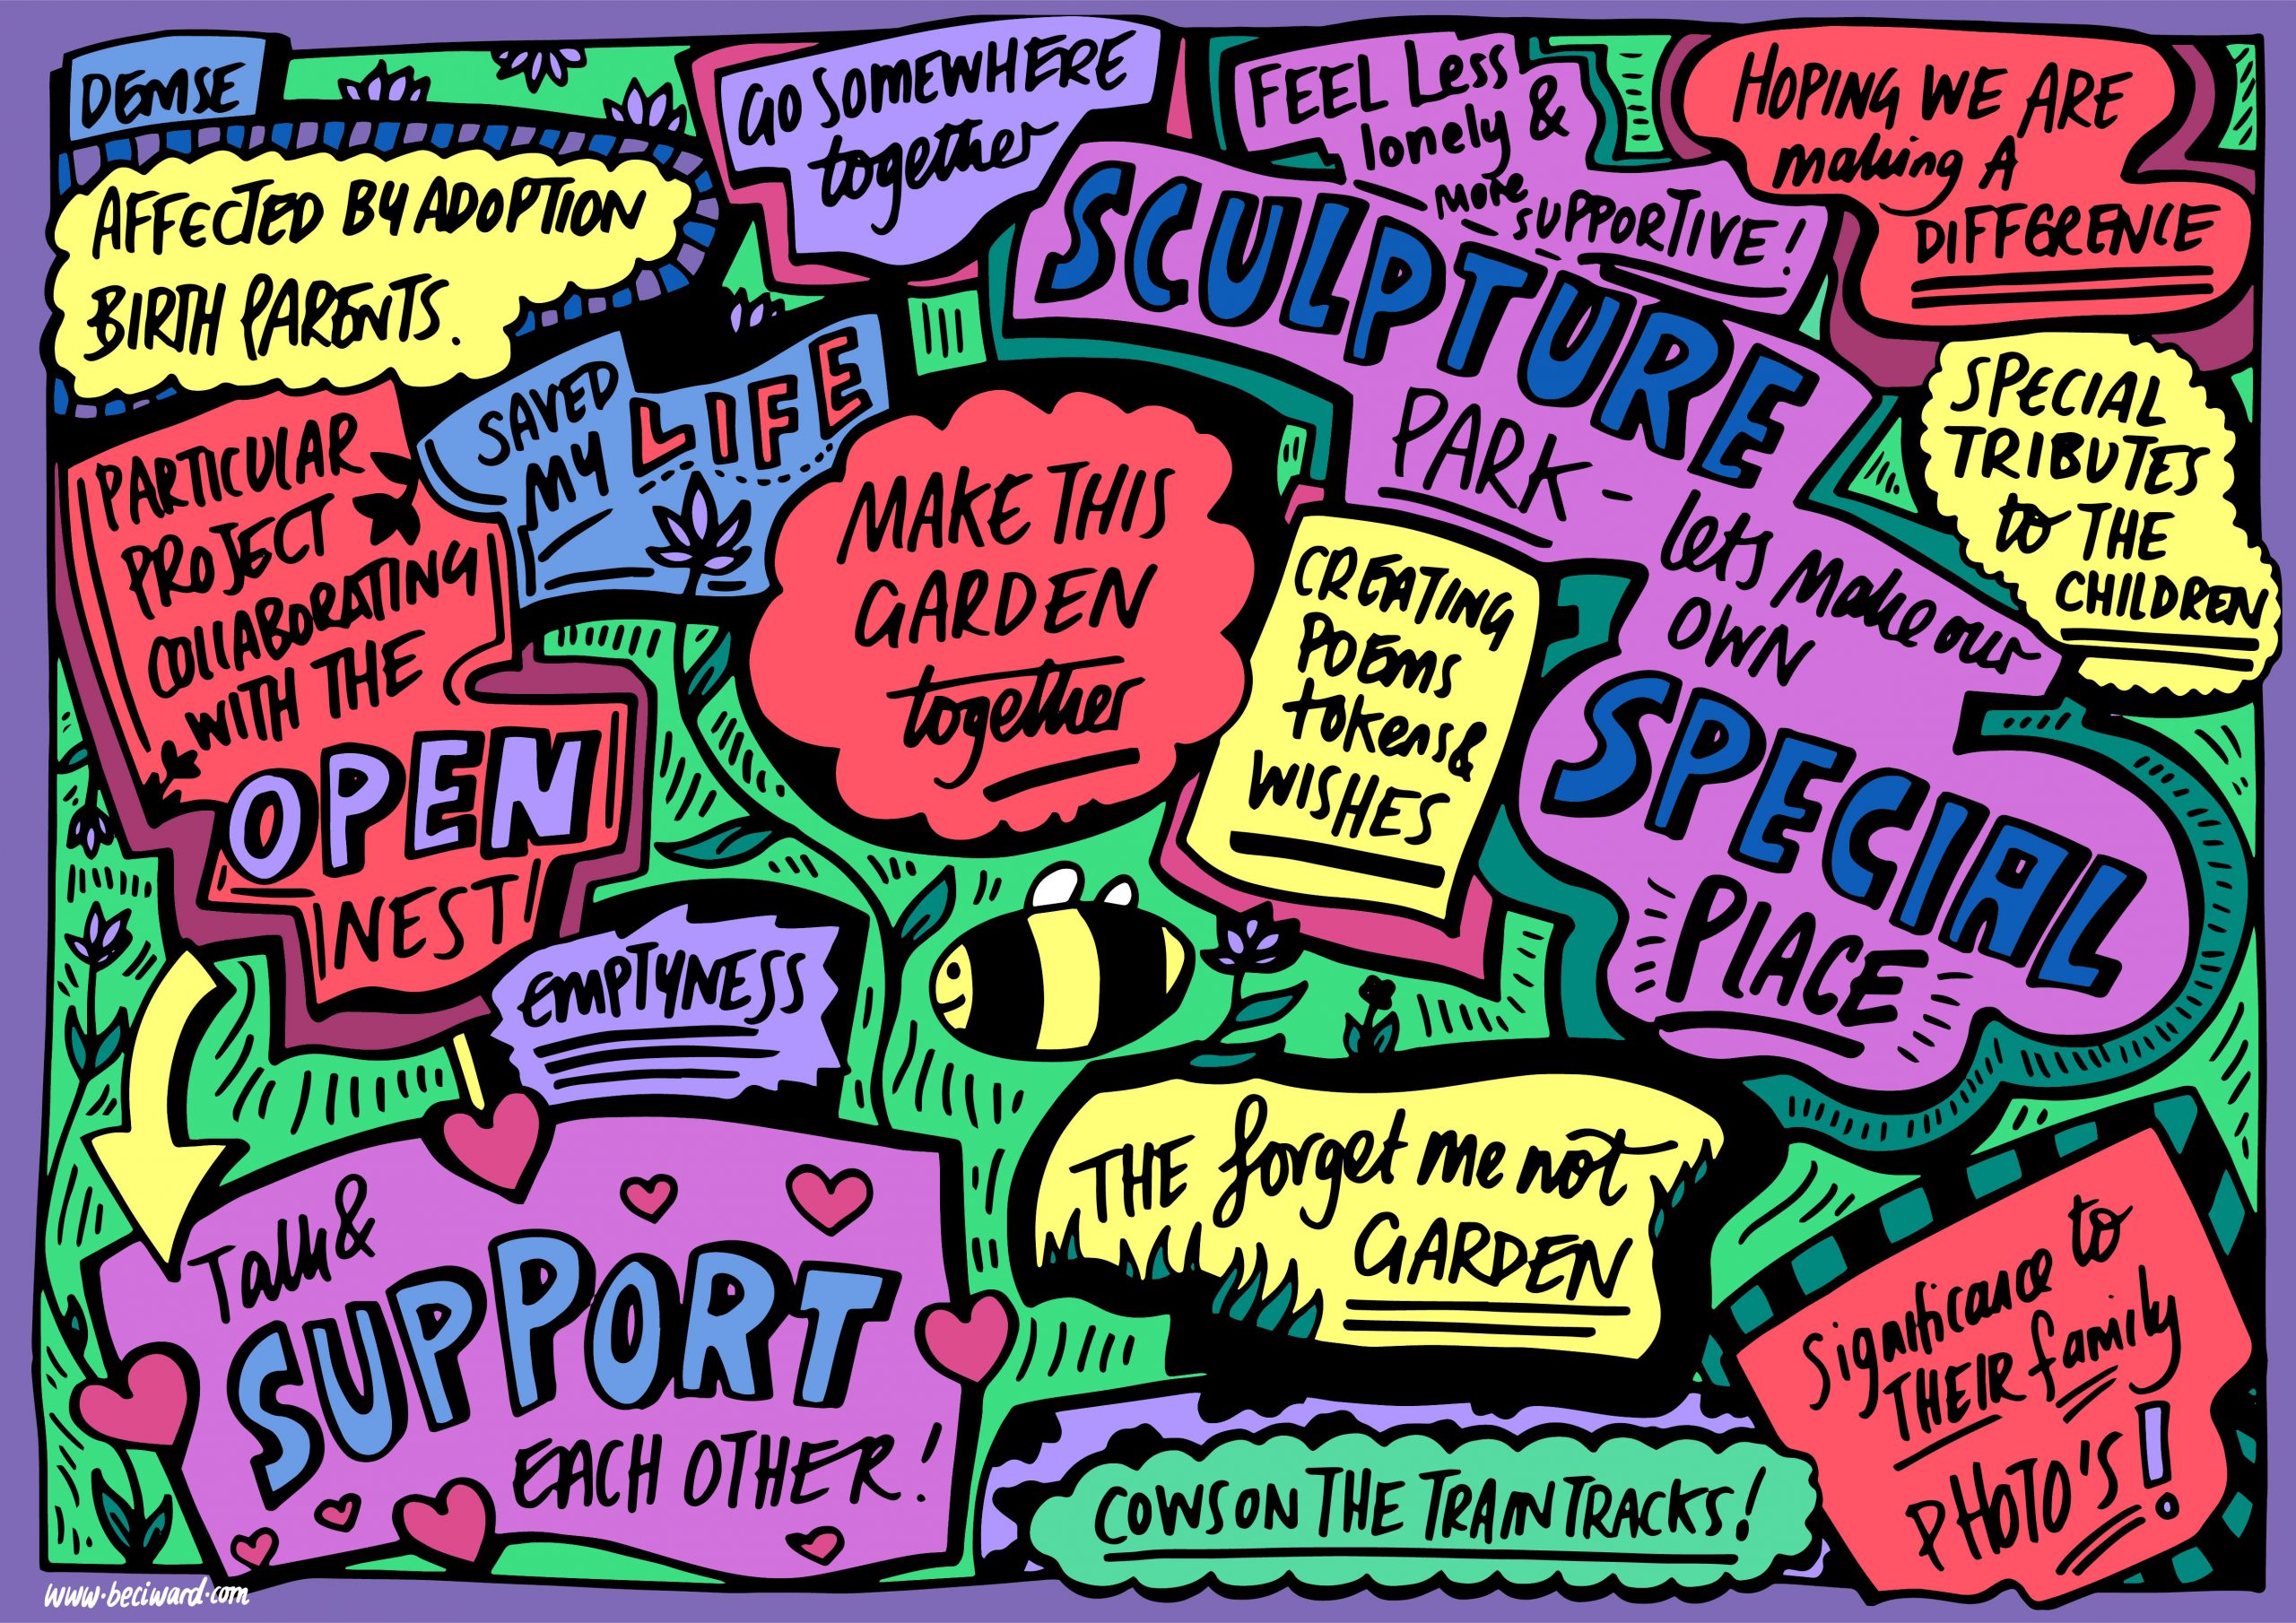 DEMSE
AFFECTED BY ADOPTION
BIRTH PARENTS.
GO SOMEWHERE
together
FEEL Less
lonely &
MORE
SUPPORTIVE!
HOPING WE ARE
making A
DIFFERENCE
SAVED
MY LIFE
SCULPTURE
PARK -
lets Make our
OWN
SPECIAL
PLACE
SPECIAL
TRIBUTES
to THE
CHILDREN
PARTICULAR
PROJECT
COLLABORATING
WITH THE
OPEN
NEST
MAKE THIS
GARDEN
together
CREATING
POEMS
tokens &
WISHES
EMPTYNESS
THE forget me not
GARDEN
Talk &
SUPPORT
EACH OTHER!
Significance to
THEIR family
PHOTO'S!
COWS ON THE TRAIN TRACKS!
www.beciward.com